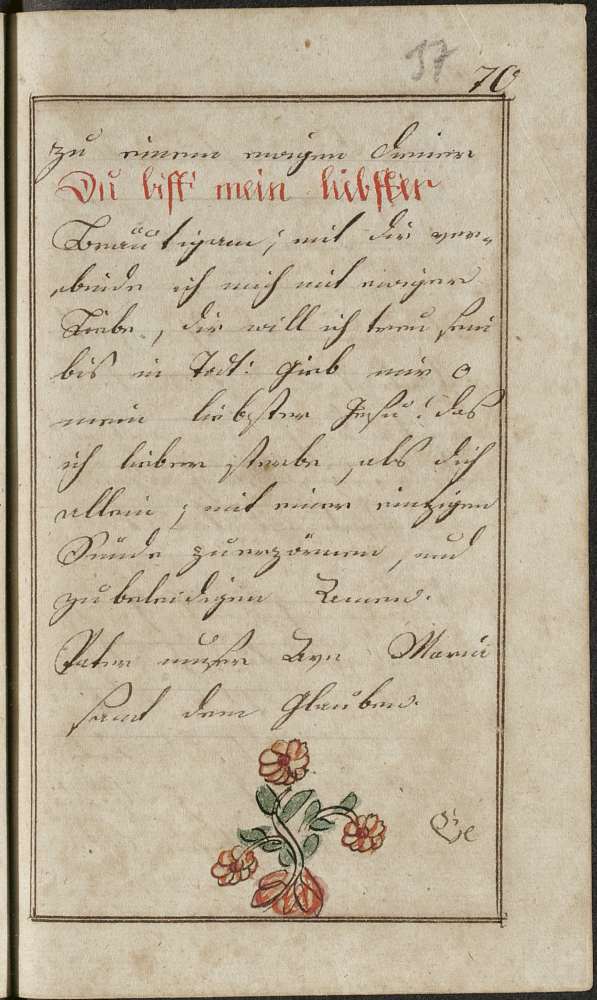 37
70
zu einem ewigen Diener
Du bist mein liebster
Bräutigam, mit dir ver-
binde ich mich mit ewiger
Liebe, dir will ich treu sein
bis in Todt: Gieb mir o
mein liebster Jesu! das
ich lieber sterbe, als dich
allein, mit einer einzigen
Sünde zuerzörnen, und
zubeleidigen Amen.
Pater unser Ave Maria
samt dem Glauben.
Ge